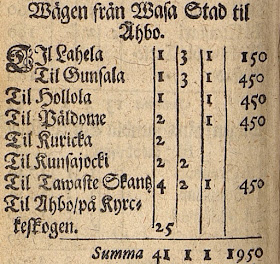 Wägen från Wasa Stad til
Åhbo.
TIl Lahela 1 3 1 150
Til Gunsala 1 3 1 450
Til Hollola 1 1 450
Til Påldome 2 1 450
Til Kuricka 2
Til Kunsajocki 2 2
Til Tawaste Skantz 4 2 1 450
Til Åhbo/på Kyrc-
keskogen. 25
Summa 41 1 1 1950